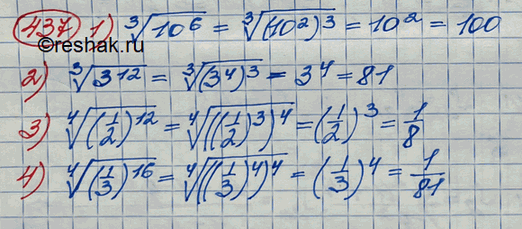 437 1) ∛(10⁶) = ∛((10²)³) = 10² = 100
©reshak.ru
2) ∛(3¹²) = ∛((3⁴)³) = 3⁴ = 81
3) ∜((1/2)¹²) = ∜(((1/2)³)⁴) = (1/2)³ = 1/8
4) ∜((1/3)¹⁶) = ∜(((1/3)⁴)⁴) = (1/3)⁴ = 1/81